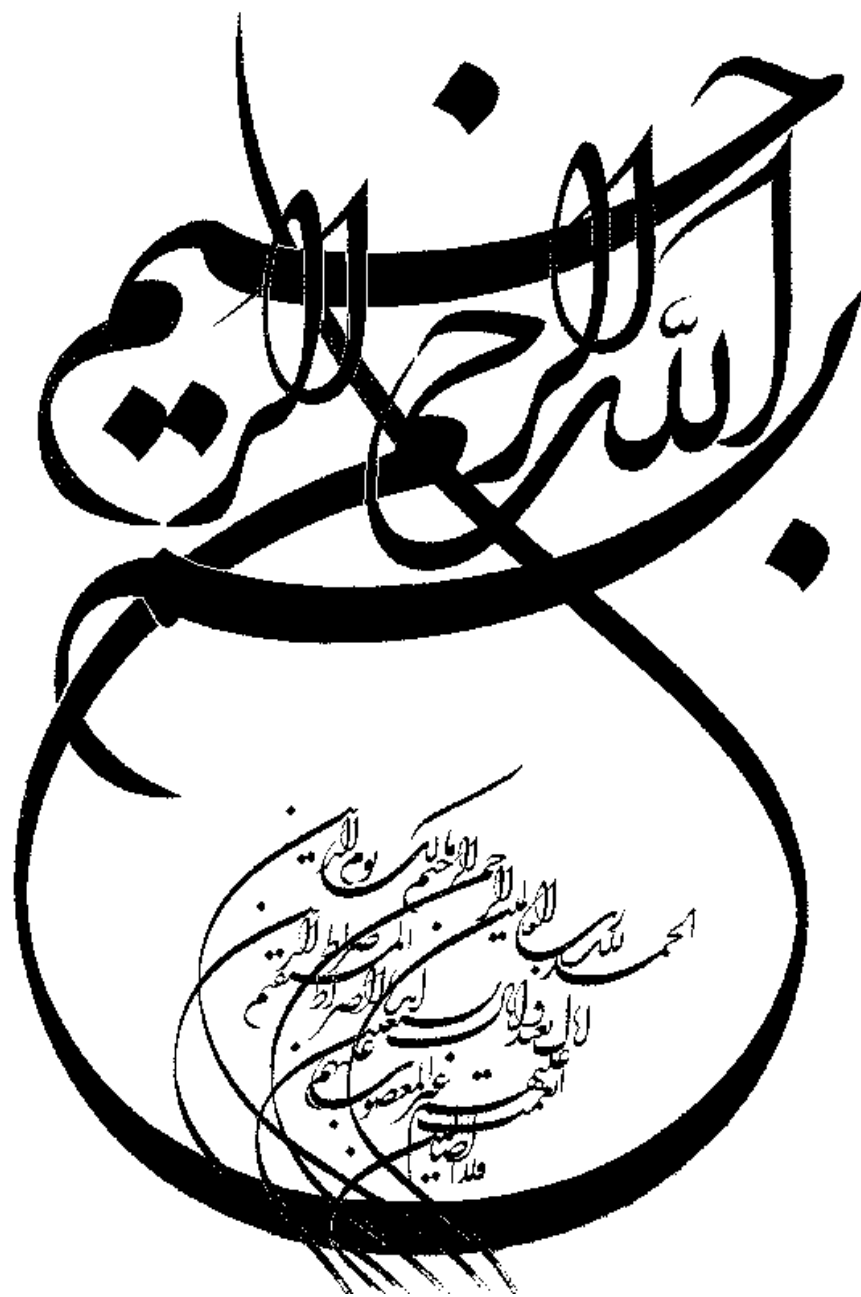 بسم الله الرحمن الرحیم
الحمد لله رب العالمین
الرحمن الرحیم مالک یوم الدین
ایاک نعبد وایاک نستعین
اهدنا الصراط المستقیم صراط الذین
انعمت علیهم غیر المغضوب علیهم
ولا الضالین